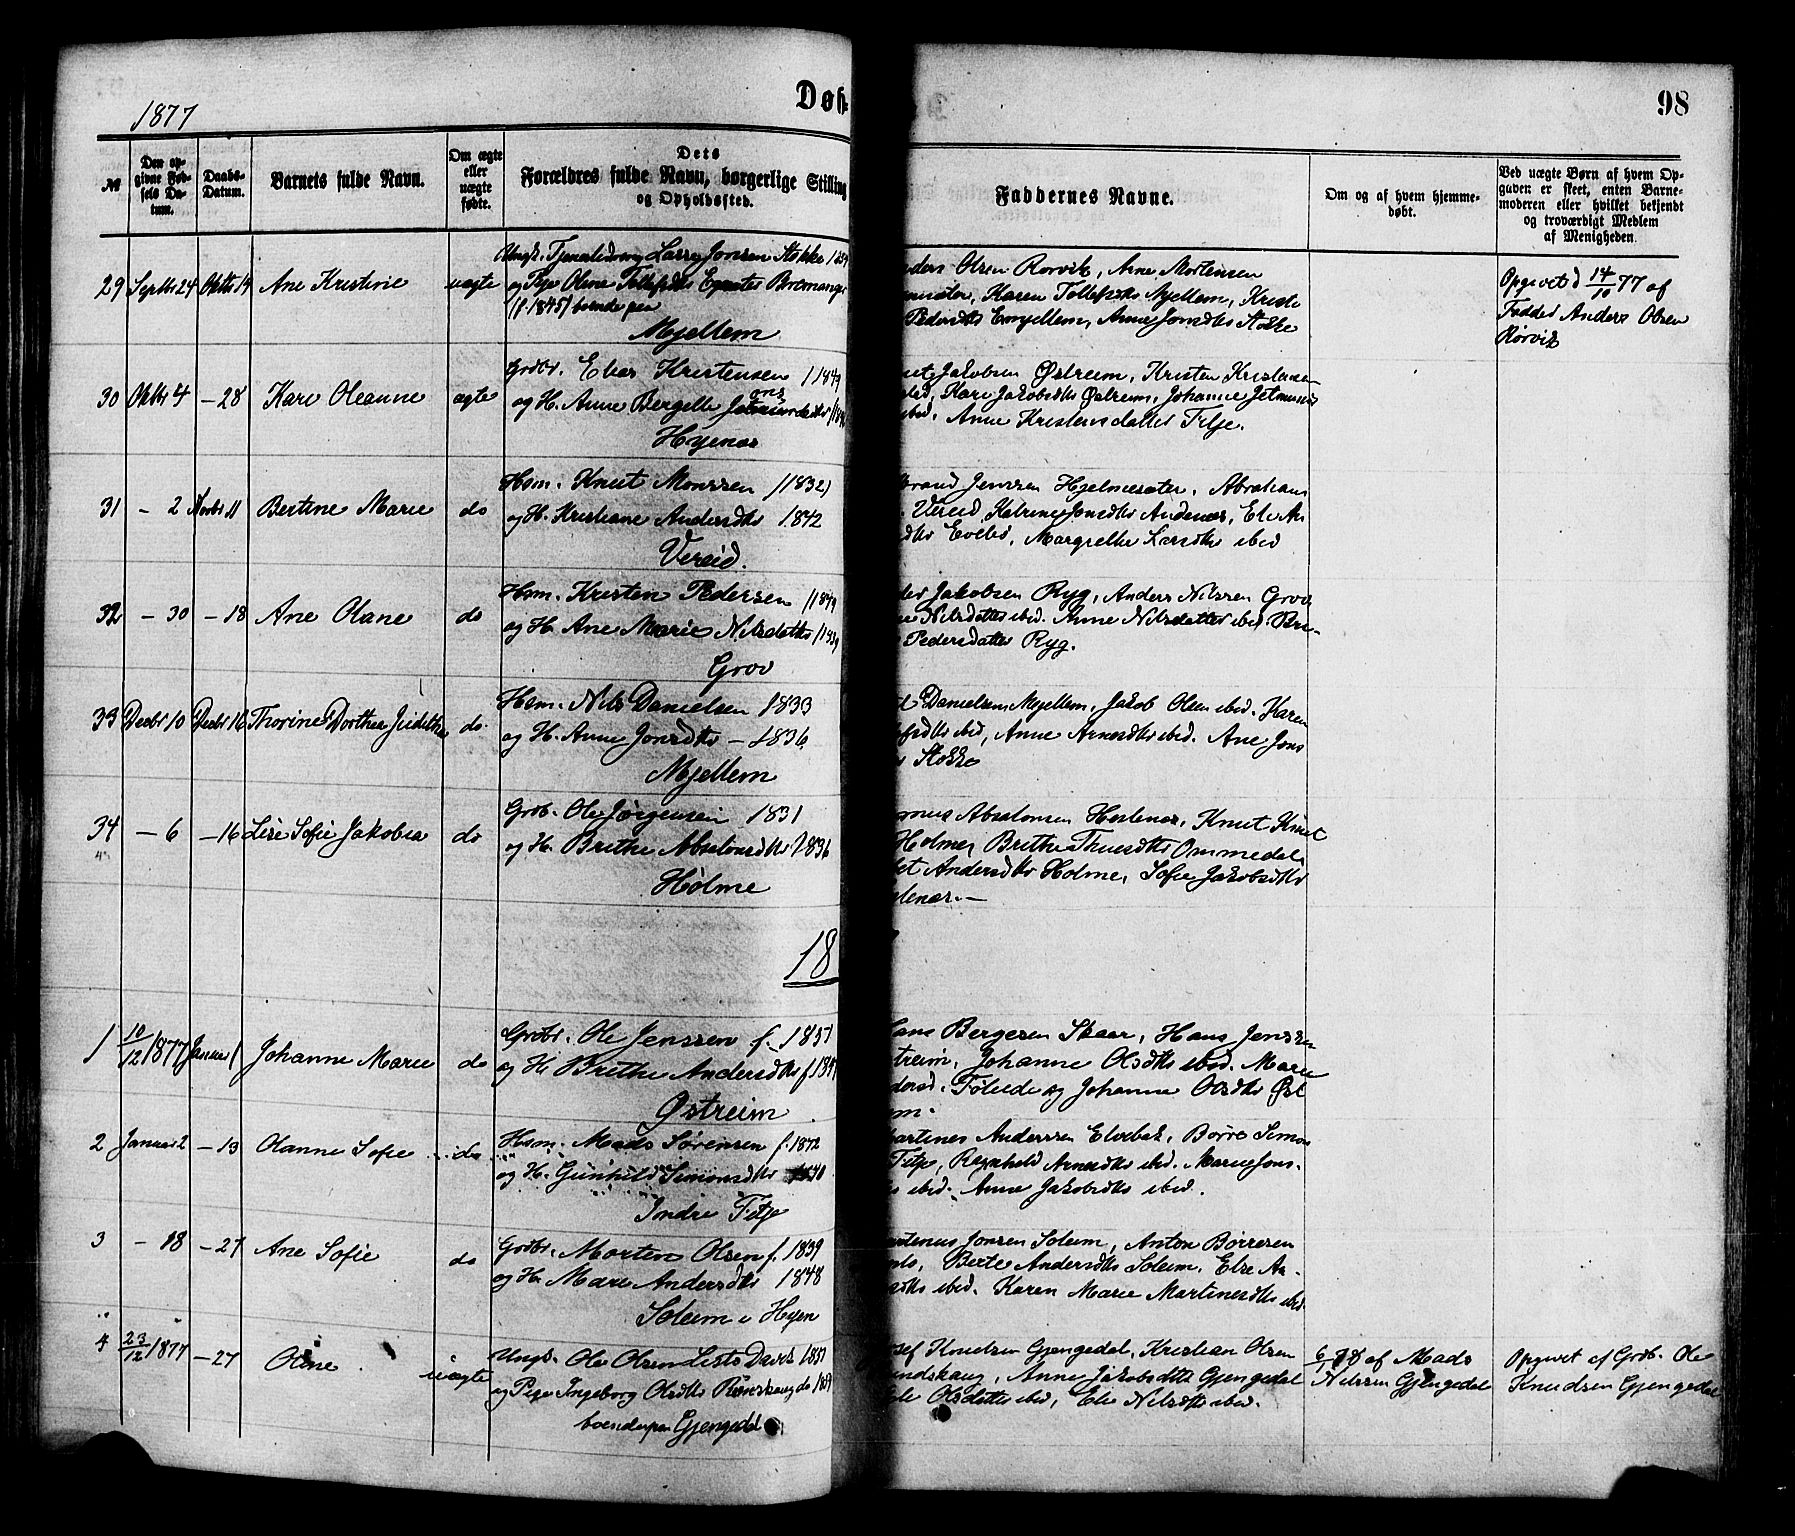 1877
Døb=
98
№
Den op-
givne Fød-
sels Da-
tum.
Daabs-
Datum.
Barnets fulde Navn.
Om ægte
eller
uægte
fødte.
Dets
Forældres fulde Navn, borgerlige Stilling
og Opholdssted.
Faddernes Navne.
Om og af hvem hjemme-
døbt.
Ved uægte Børn af hvem Op-
gaven er skeet, enten Barne-
moderen eller hvilket bekjendt
og troværdigt Medlem
af Menigheden.
29 Septbr 24 Oktbr 14 Ane Kristine uægte
Ungk. Tjenestedreng Lasse Jonsen Stokke 1859
og Pige Oline Tollefsdtr Bremanger
(f. 1845) boende paa
Mjellem
Anders Olsen Rørvik, Arne Mortensen
Karen Tollefsdtr Mjellem, Kristi
Pedersdtr Emjellem, Anne Jonsdtr Stokke
Opgivet d 14/10 77 af
Fadder Anders Olsen
Rørvik
30 Oktbr 4 – 28 Kari Oleanne ægte
Grdbr. Elias Kristensen / 1849
og H. Anne Bergitte
Hyenæs
Jakobsen Østreim, Kristen Kristensen
Kari Jakobsdtr Østreim, Johanne Jetmunds
Anne Kristensdatter Fitje.
31 – 2 Novbr 11 Bertine Marie do
Hsm. Knut Monssen /1832/
og H. Kristiane Andersdtr 1842
Vereid.
Jenssen Hjelmesæter, Abraham
Vereid, Katrine Jonsdtr Andenæs, Eli An
dtr Evebø, Margrethe Larsdtr ibid
32 – 30 – 18 Ane Olane do
Hsm. Kristen Pedersen /1849
og H. Ane Marie Nilsdatter /1839
Grov
Jakobsen Ryg, Anders Nilssen Grov
Nilsdatter ibid. Anne Nilsdatter ibid. Bri-
Pedersdatter Ryg.
33 Decbr 10 Decbr 16 Thorine Dorthea Juditha do
Hsm. Nils Danielsen 1833
og H. Anne Jonsdtr – 1836
Mjellem
Danielsen Mjellem, Jakob Olsen ibid. Karen
ibid, Anne Arnesdtr ibid. Ane Jons
Stokke
34 – 6 – 16 Lise Sofie Jakobea do
Grdb. Ole Jørgensen 1831
og H. Brithe Absalonsdtr 1836
Holme
Absalonsen Hestenæs, Knut Knut
Holme, Brithe Thuesdtr Ommedal,
Andersdtr Holme, Sofie Jakobsdtr
18
1 10/12 1877 Januar 1 Johanne Marie do
Grdbr. Ole Jenssen f. 1851
og H. Brithe Andersdtr f.
Østreim
Hans Bergesen Skaar, Hans Jenssen
Østreim, Johanne Olsdtr ibid. Marie
og Johanne Olsdtr Øst
2 Januar 2 – 13 Olanne Sofie do
Hsm. Mads Sørensen f. 1842
og H. Gunhild Simonsdtr 1840
Indre Fitje
Martines Anderssen Elvebak, Børre Simon
Fitje, Ragnhild Arnesdtr ibid. Marie Jons-
ibid. Anne Jakobsdtr ibid.
3 – 18 – 27 Ane Sofie do
Grdbr. Morten Olsen f. 1839
og H. Mari Andersdtr 1848
Soleim i Hyen
Jonsen Soleim, Anton Børresen
Berte Andersdtr Soleim, Else An-
ibid. Karen Marie Martinesdtr ibid.
4 23/12 1877 – 27 Oline uægte
Ungk. Ole Olsen 1851
og Pige Ingeborg Olsdtr
boende paa Gjengedal
Knudsen Gjengedal, Kristian Olsen
Anne Jakobsdtr Gjengedal
Olsdatter ibid, Eli Nilsdtr ibid.
af Mads
Nilssen Gjengedal
Opgivet af Grdb. Ole
Knudsen Gjengedal